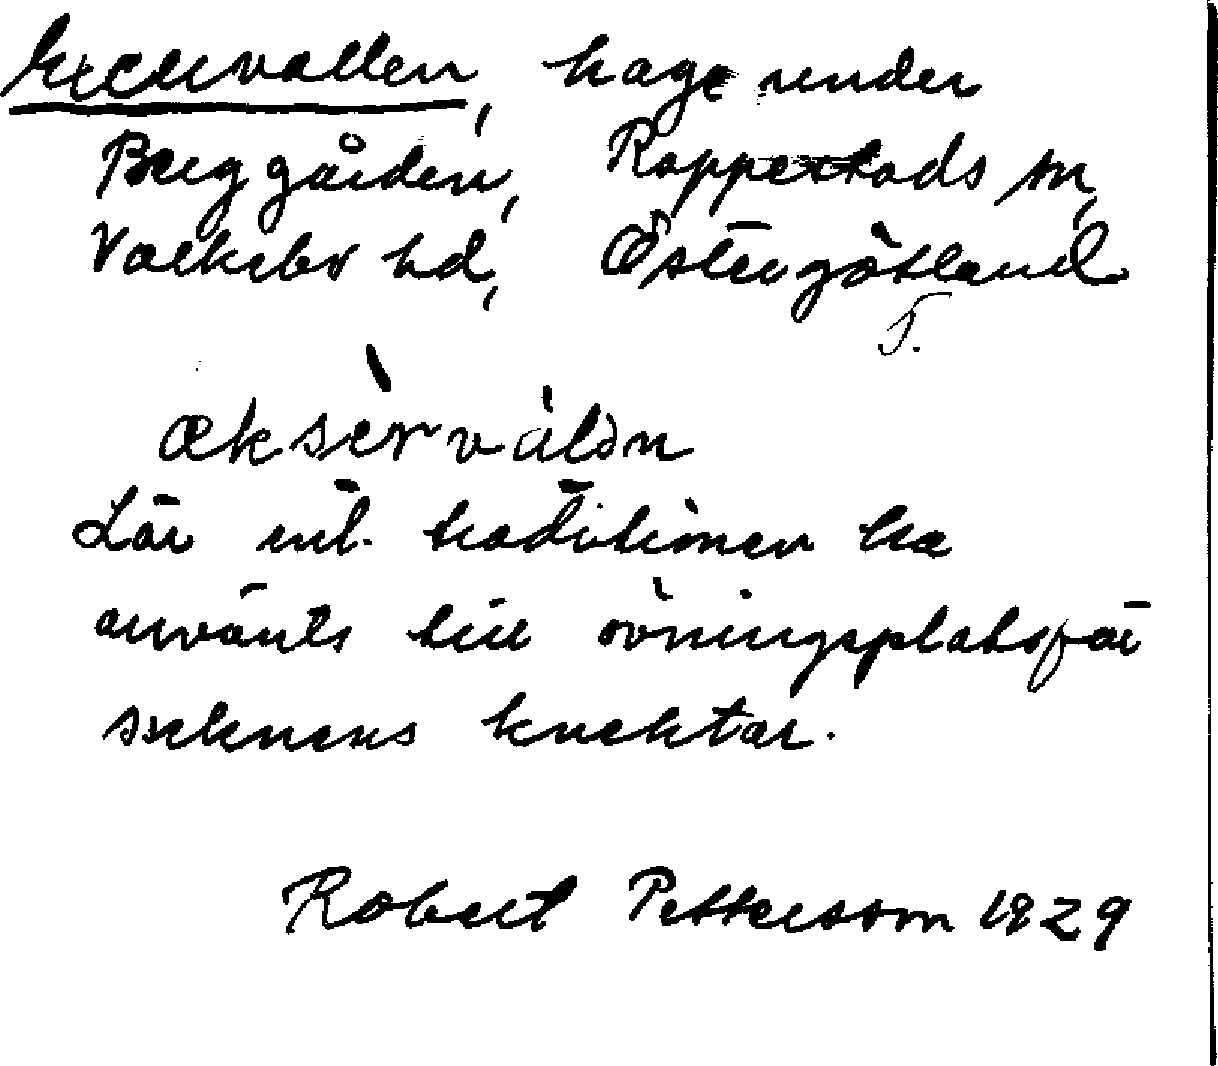 Excervallen, hage under
Berggården, Rappestads sn,
Valkebo hd, Östergötland
T.
æksèrvàldn
Lär enl. traditionen ha
använts till övningsplats för
socknens knektar.
Robert Pettersson 1929